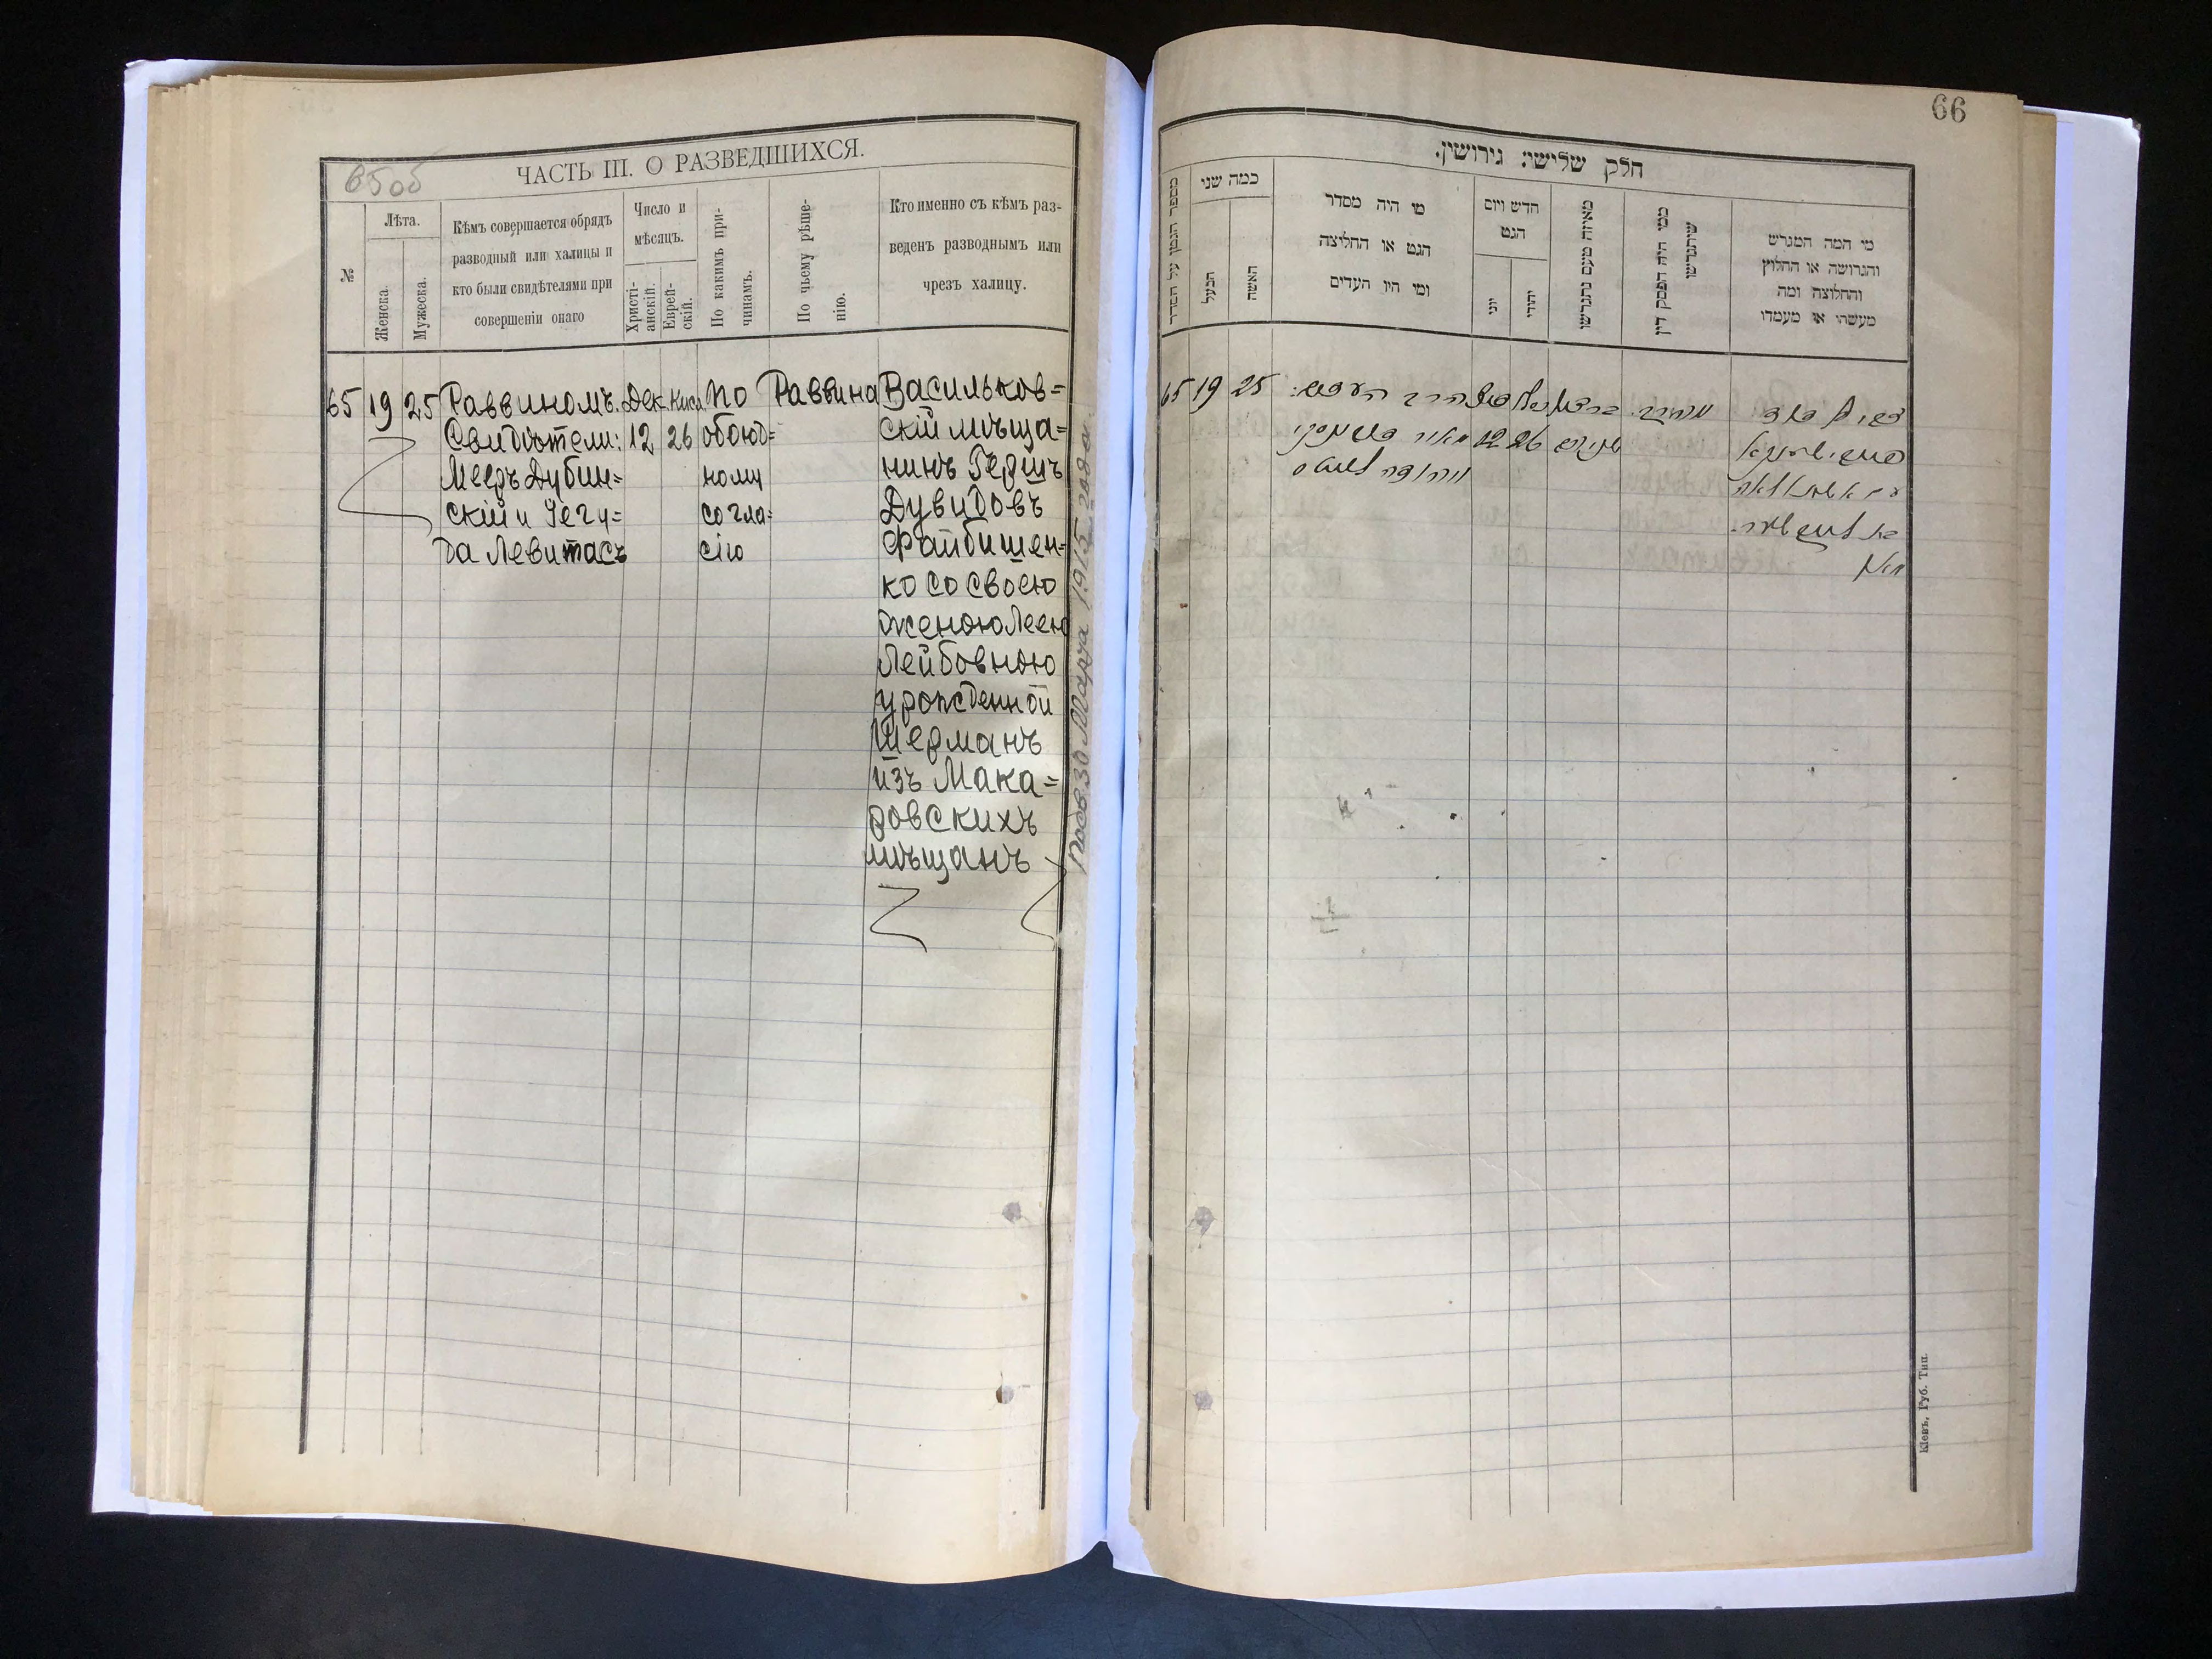 65об
ЧАСТЬ III. О РАЗВЕДШИХСЯ.
№
Лѣта.
Женска.
Мужеска.
Кѣмъ совершается обрядъ
разводный или халицы и
кто были свидѣтелями при
совершеніи онаго
Число и
мѣсяцъ.
Христі-
анскій.
Еврей-
скій.
По какимъ при-
чинамъ.
По чьему рѣше-
нію.
Кто именно съ кѣмъ раз-
веденъ разводнымъ или
чрезъ халицу.
65 19 25
Раввиномъ.
Свидѣтели:
Мееръ Дубин=
скій и Іегу=
да Левитасъ
Дек.
12
Кисл.
26
По
обоюд=
ному
согла=
сію
Раввина
Васильков=
скій мѣща=
нинъ Гершъ
Дувидовъ
Файбишен=
ко со своею
женою Леею
Лейбовною
урожденной
Шерманъ
изъ Мака=
ровскихъ
мѣщанъ
30 Марта 1915 года
66
חלק שלישי: גירושין.
מספר הגטן על הסדר
כמה שני
הבעל
האשה
מי היה מסדר
הגט או החליצה
ומי היו העדים
חדש ויום
הגט
יוני
יהודי
מאיזה טעם נתגרשו
ממי היה הפסק דין
שיתגרשו
מי המה המגרש
והגרושה או החלוץ
והחלוצה ומה
מעשהו או מעמדו
65 19 25
12 26
Кіевъ, Губ. Тип.